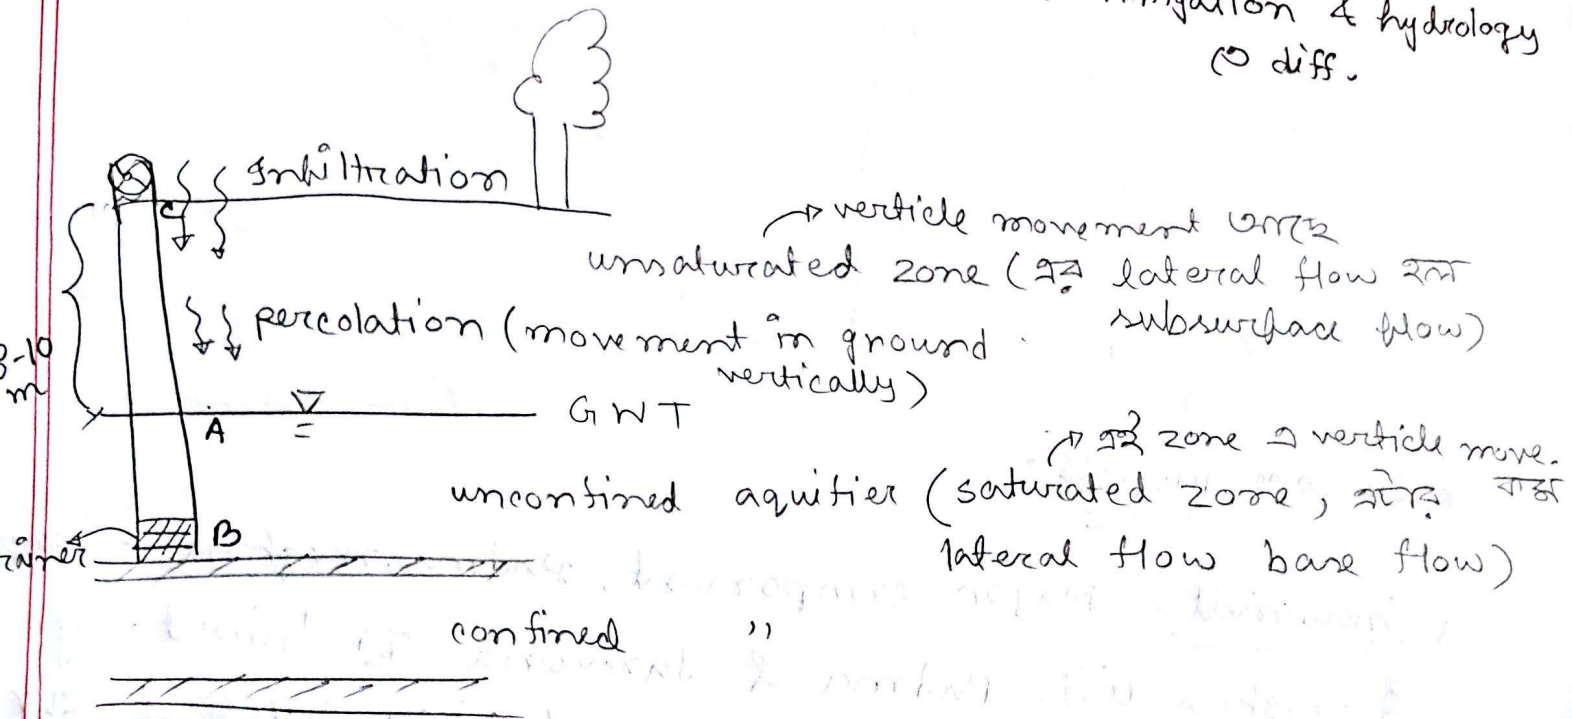 & hydrology
তে diff.
Infiltration
verticle movement আছে
unsaturated zone (এর lateral flow হল
subsurface flow)
percolation (movement in ground
vertically)
3-10
m
GWT
A
এই zone এ verticle move.
কম
unconfined aquifier (saturated zone, এটার
lateral flow base flow)
B
confined "